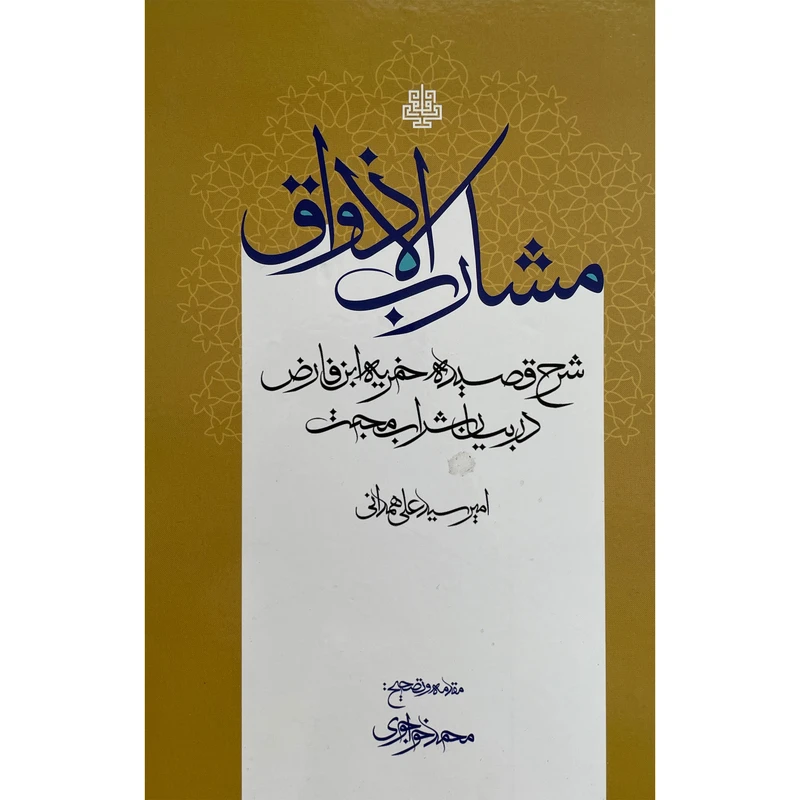 مشارب الاذواق
شرح قصیده خمریه ابن فارض
در بیان شراب محبت
امیر سید علی همدانی
مقدمه و تصحیح:
محمد خواجوی